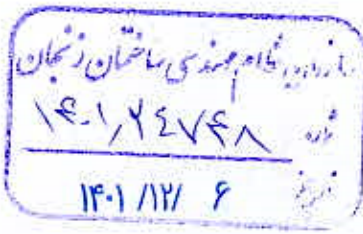 سازمان نظام مهندسی ساختمان زنجان
شماره ۱۴۰۱,۲۴۷۴۸
تاریخ ۱۴۰۱/۱۲/ ۶